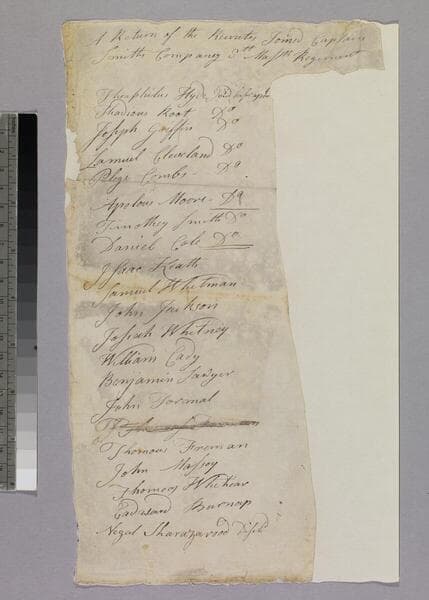 A Return of the Recrutes Joined Captain
Smiths Company 3rd Massts Regement
Theaphilus Hyde
Thadious Root Do
Joseph Griffin Do
Samuel Cleveland Do
Pelegs Combs - Do
Apolous Moore - Do
Timothey Smith Do
Daniel Cole Do
Isaac Keath
Samuel Whitman
John Jackson
Joseph Whitney
William Cady
Benjamin Sawyer
John Dormal
Thomous Freman
John Massey
Thomos Whitear
Eadward Burnap
Negal